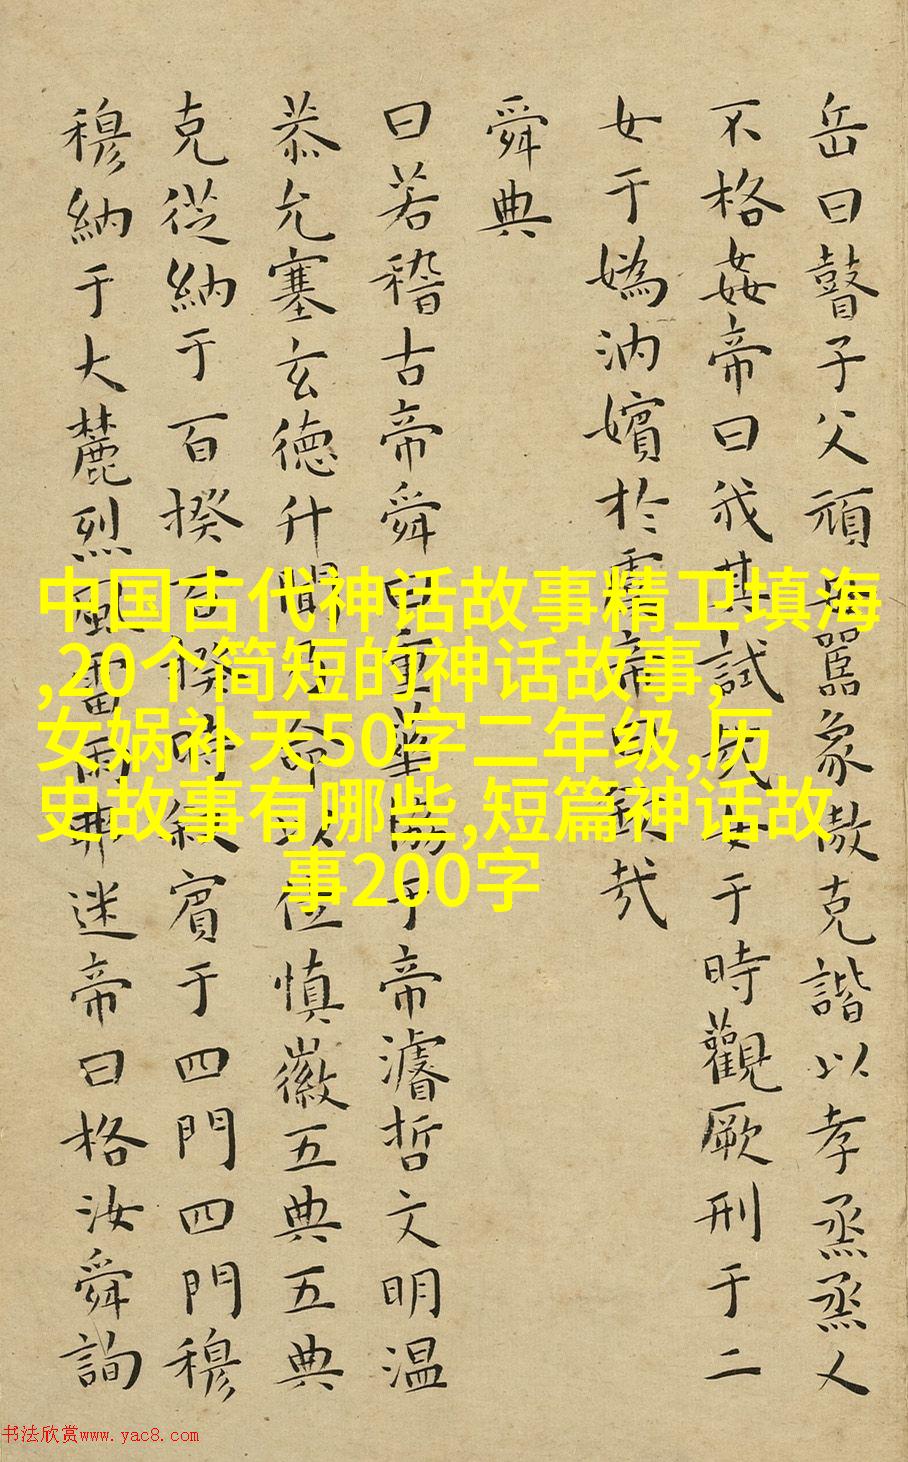 岳曰瞽子父頑母嚚象傲克諧以孝烝烝乂
不格姦帝曰我其試哉女于時觀厥刑于二
女于媯汭嬪於虞帝曰欽哉
舜典
曰若稽古帝舜曰重華協于帝濬哲文明温
恭允塞玄德升聞乃命以位慎徽五典五典
克從納于百揆百揆時敘賓于四門四門穆
穆納于大麓烈風雷雨弗迷帝曰格汝舜詢
中国古代神话故事精卫填海
,20个简短的神话故事,
女娲补天50字二年级,历
史故事有哪些,短篇神话故
事200字
书法欣赏www.yac8.com